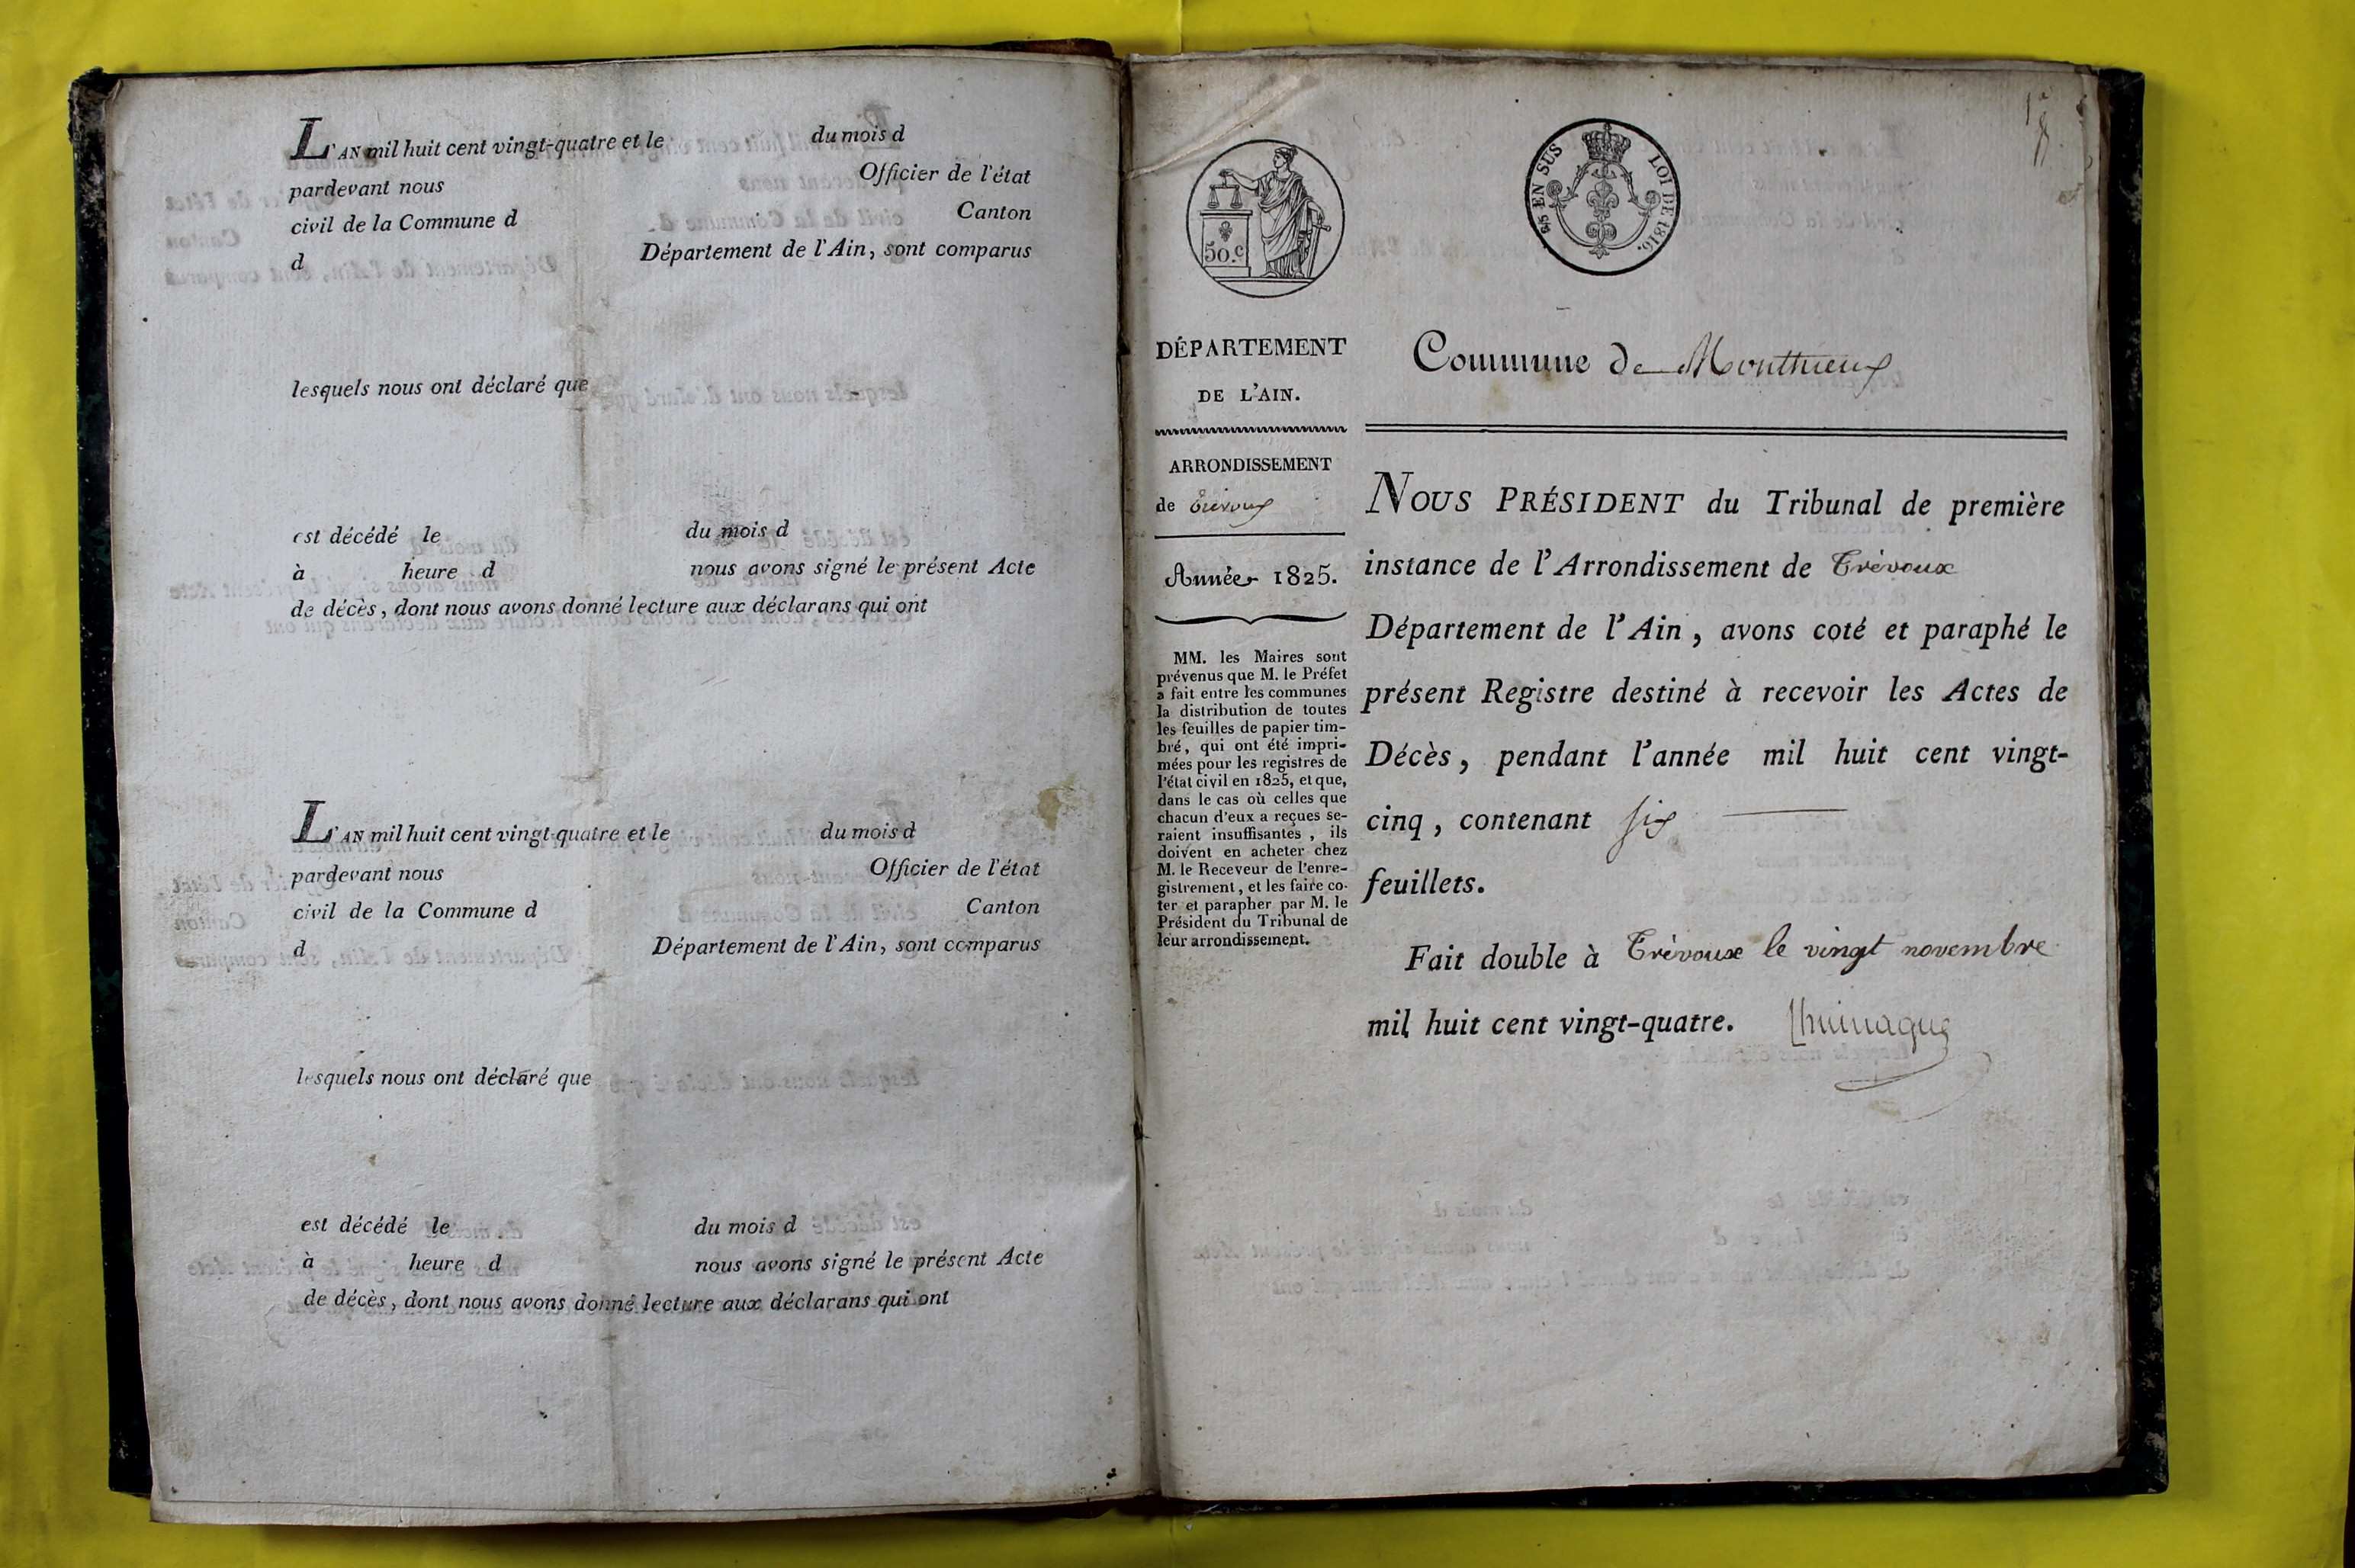 L'AN mil huit cent vingt-quatre et le du mois d
pardevant nous Officier de l'état
civil de la Commune d Canton
d Département de l'Ain, sont comparus
lesquels nous ont déclaré que
est décédé le du mois d
à heure d nous avons signé le présent Acte
de décès, dont nous avons donné lecture aux déclarans qui ont
L'AN mil huit cent vingt-quatre et le du mois d
pardevant nous Officier de l'état
civil de la Commune d Canton
d Département de l'Ain, sont comparus
lesquels nous ont déclaré que
est décédé le du mois d
à heure d nous avons signé le présent Acte
de décès, dont nous avons donné lecture aux déclarans qui ont
50.c
EN SUS LOI DE 1816.
DÉPARTEMENT
DE L'AIN.
ARRONDISSEMENT
de Trévoux
Année 1825.
MM. les Maires sont
prévenus que M. le Préfet
a fait entre les communes
la distribution de toutes
les feuilles de papier tim-
bré, qui ont été impri-
mées pour les registres de
l'état civil en 1825, et que,
dans le cas où celles que
chacun d'eux a reçues se-
raient insuffisantes, ils
doivent en acheter chez
M. le Receveur de l'enre-
gistrement, et les faire co-
ter et parapher par M. le
Président du Tribunal de
leur arrondissement.
Commune de Monthieux
NOUS PRÉSIDENT du Tribunal de première
instance de l'Arrondissement de Trévoux
Département de l'Ain, avons coté et paraphé le
présent Registre destiné à recevoir les Actes de
Décès, pendant l'année mil huit cent vingt-
cinq, contenant six
feuillets.
Fait double à Trévoux le vingt novembre
mil huit cent vingt-quatre.